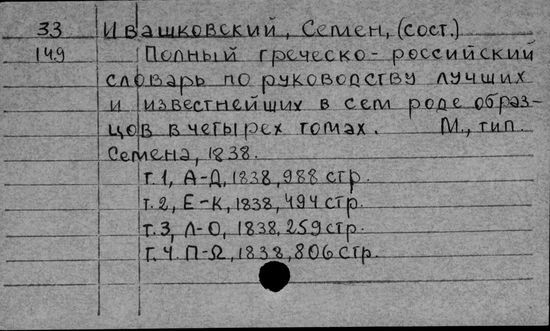 33 Ивашковский, Семен, (сост.)
149 Полный греческо-российский
словарь по руководству лучших
и известнейших в сем роде образ-
цов в четырех томах. М., тип.
Семена, 1838.
т. 1, А-Д, 1838, 988 стр.
т. 2, Е-К, 1838, 494 стр.
т. 3, Л-О, 1838, 259 стр.
т. 4. П-Ω, 1838, 806 стр.